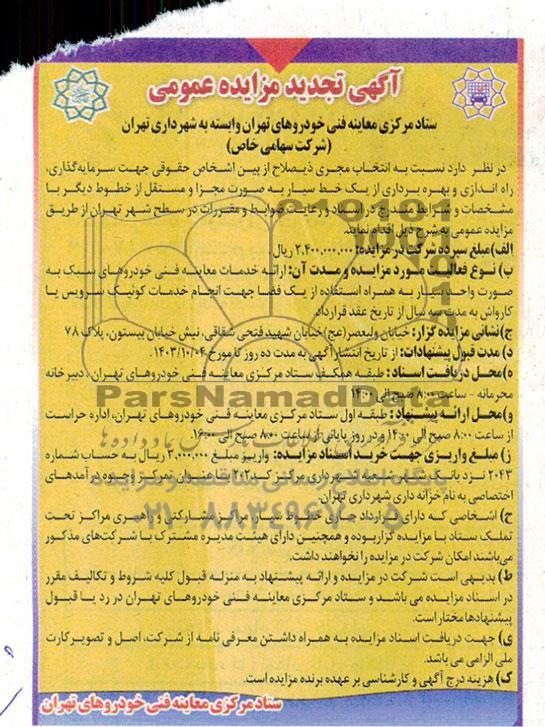 آگهی تجدید مزایده عمومی
ستاد مرکزی معاینه فنی خودروهای تهران وابسته به شهرداری تهران
(شرکت سهامی خاص)
در نظر دارد نسبت به انتخاب مجری ذیصلاح از بین اشخاص حقوقی جهت سرمایه‌گذاری،
راه اندازی و بهره برداری از یک خط سیار به صورت مجزا و مستقل از خطوط دیگر با
مشخصات و شرایط مندرج در اسناد و رعایت ضوابط و مقررات در سطح شهر تهران از طریق
مزایده عمومی به شرح ذیل اقدام نماید.
الف) مبلغ سپرده شرکت در مزایده: ۲.۴۰۰.۰۰۰.۰۰۰ ریال
ب) نوع فعالیت مورد مزایده و مدت آن: ارائه خدمات معاینه فنی خودروهای سبک به
صورت واحد سیار به همراه استفاده از یک فضا جهت انجام خدمات کوئیک سرویس یا
کارواش به مدت سه سال از تاریخ عقد قرارداد.
ج) نشانی مزایده گزار: خیابان ولیعصر(عج) خیابان شهید فتحی شقاقی، نبش خیابان بیستون، پلاک ۷۸
د) مدت قبول پیشنهادات: از تاریخ انتشار آگهی به مدت ده روز تا مورخ ۱۴۰۳/۱۰/۰۴
ه) محل دریافت اسناد: طبقه همکف ستاد مرکزی معاینه فنی خودروهای تهران، دبیرخانه
محرمانه - ساعت ۸:۰۰ صبح الی ۱۴:۰۰
و) محل ارائه پیشنهاد: طبقه اول ستاد مرکزی معاینه فنی خودروهای تهران، اداره حراست
از ساعت ۸:۰۰ صبح الی ۱۴:۰۰ و در روز پایانی از ساعت ۸:۰۰ صبح الی ۱۶:۰۰
ز) مبلغ واریزی جهت خرید اسناد مزایده: واریز مبلغ ۲.۰۰۰.۰۰۰ ریال به حساب شماره
۲۰۴۳ نزد بانک شهر شعبه شهرداری مرکز کد ۲۰۲ با عنوان تمرکز وجوه درآمدهای
اختصاصی به نام خزانه داری شهرداری تهران.
ح) اشخاصی که دارای قرارداد جاری خطوط سیار، مراکز مشارکتی و راهبری مراکز تحت
تملک ستاد با مزایده گزار بوده و همچنین دارای هیئت مدیره مشترک با شرکت‌های مذکور
می‌باشند امکان شرکت در مزایده را نخواهند داشت.
ط) بدیهی است شرکت در مزایده و ارائه پیشنهاد به منزله قبول کلیه شروط و تکالیف مقرر
در اسناد مزایده می باشد و ستاد مرکزی معاینه فنی خودروهای تهران در رد یا قبول
پیشنهادها مختار است.
ی) جهت دریافت اسناد مزایده به همراه داشتن معرفی نامه از شرکت، اصل و تصویر کارت
ملی الزامی می باشد.
ک) هزینه درج آگهی و کارشناسی بر عهده برنده مزایده است.
ستاد مرکزی معاینه فنی خودروهای تهران
ParsNamadData
۰۲۱-۸۸۳۴۹۶۷۰-۵